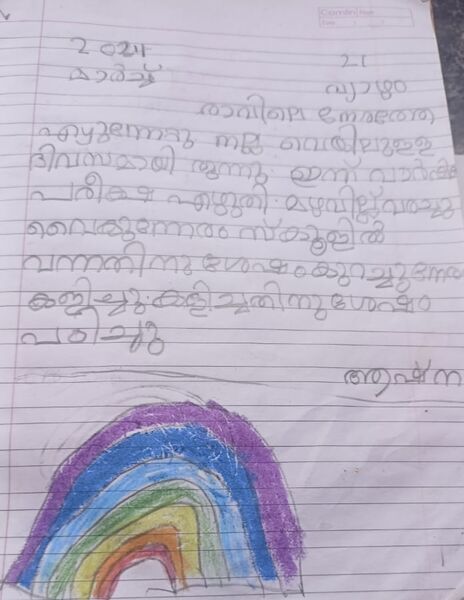 2024 21
മാർച്ച് വ്യാഴം
രാവിലെ നേരത്തേ
എഴുന്നേറ്റു നല്ല വെയിലുള്ള
ദിവസമായി തുന്നു. ഇന്ന് വാർഷിക
പരീക്ഷ എഴുതി. മഴവില്ല് വരച്ചു
വൈകുന്നേരം സ്കൂളിൽ
വന്നതിനു ശേഷം കുറച്ചുനേരം
കളിച്ചു. കളിച്ചതിനു ശേഷം
പഠിച്ചു
ആഷ്ന